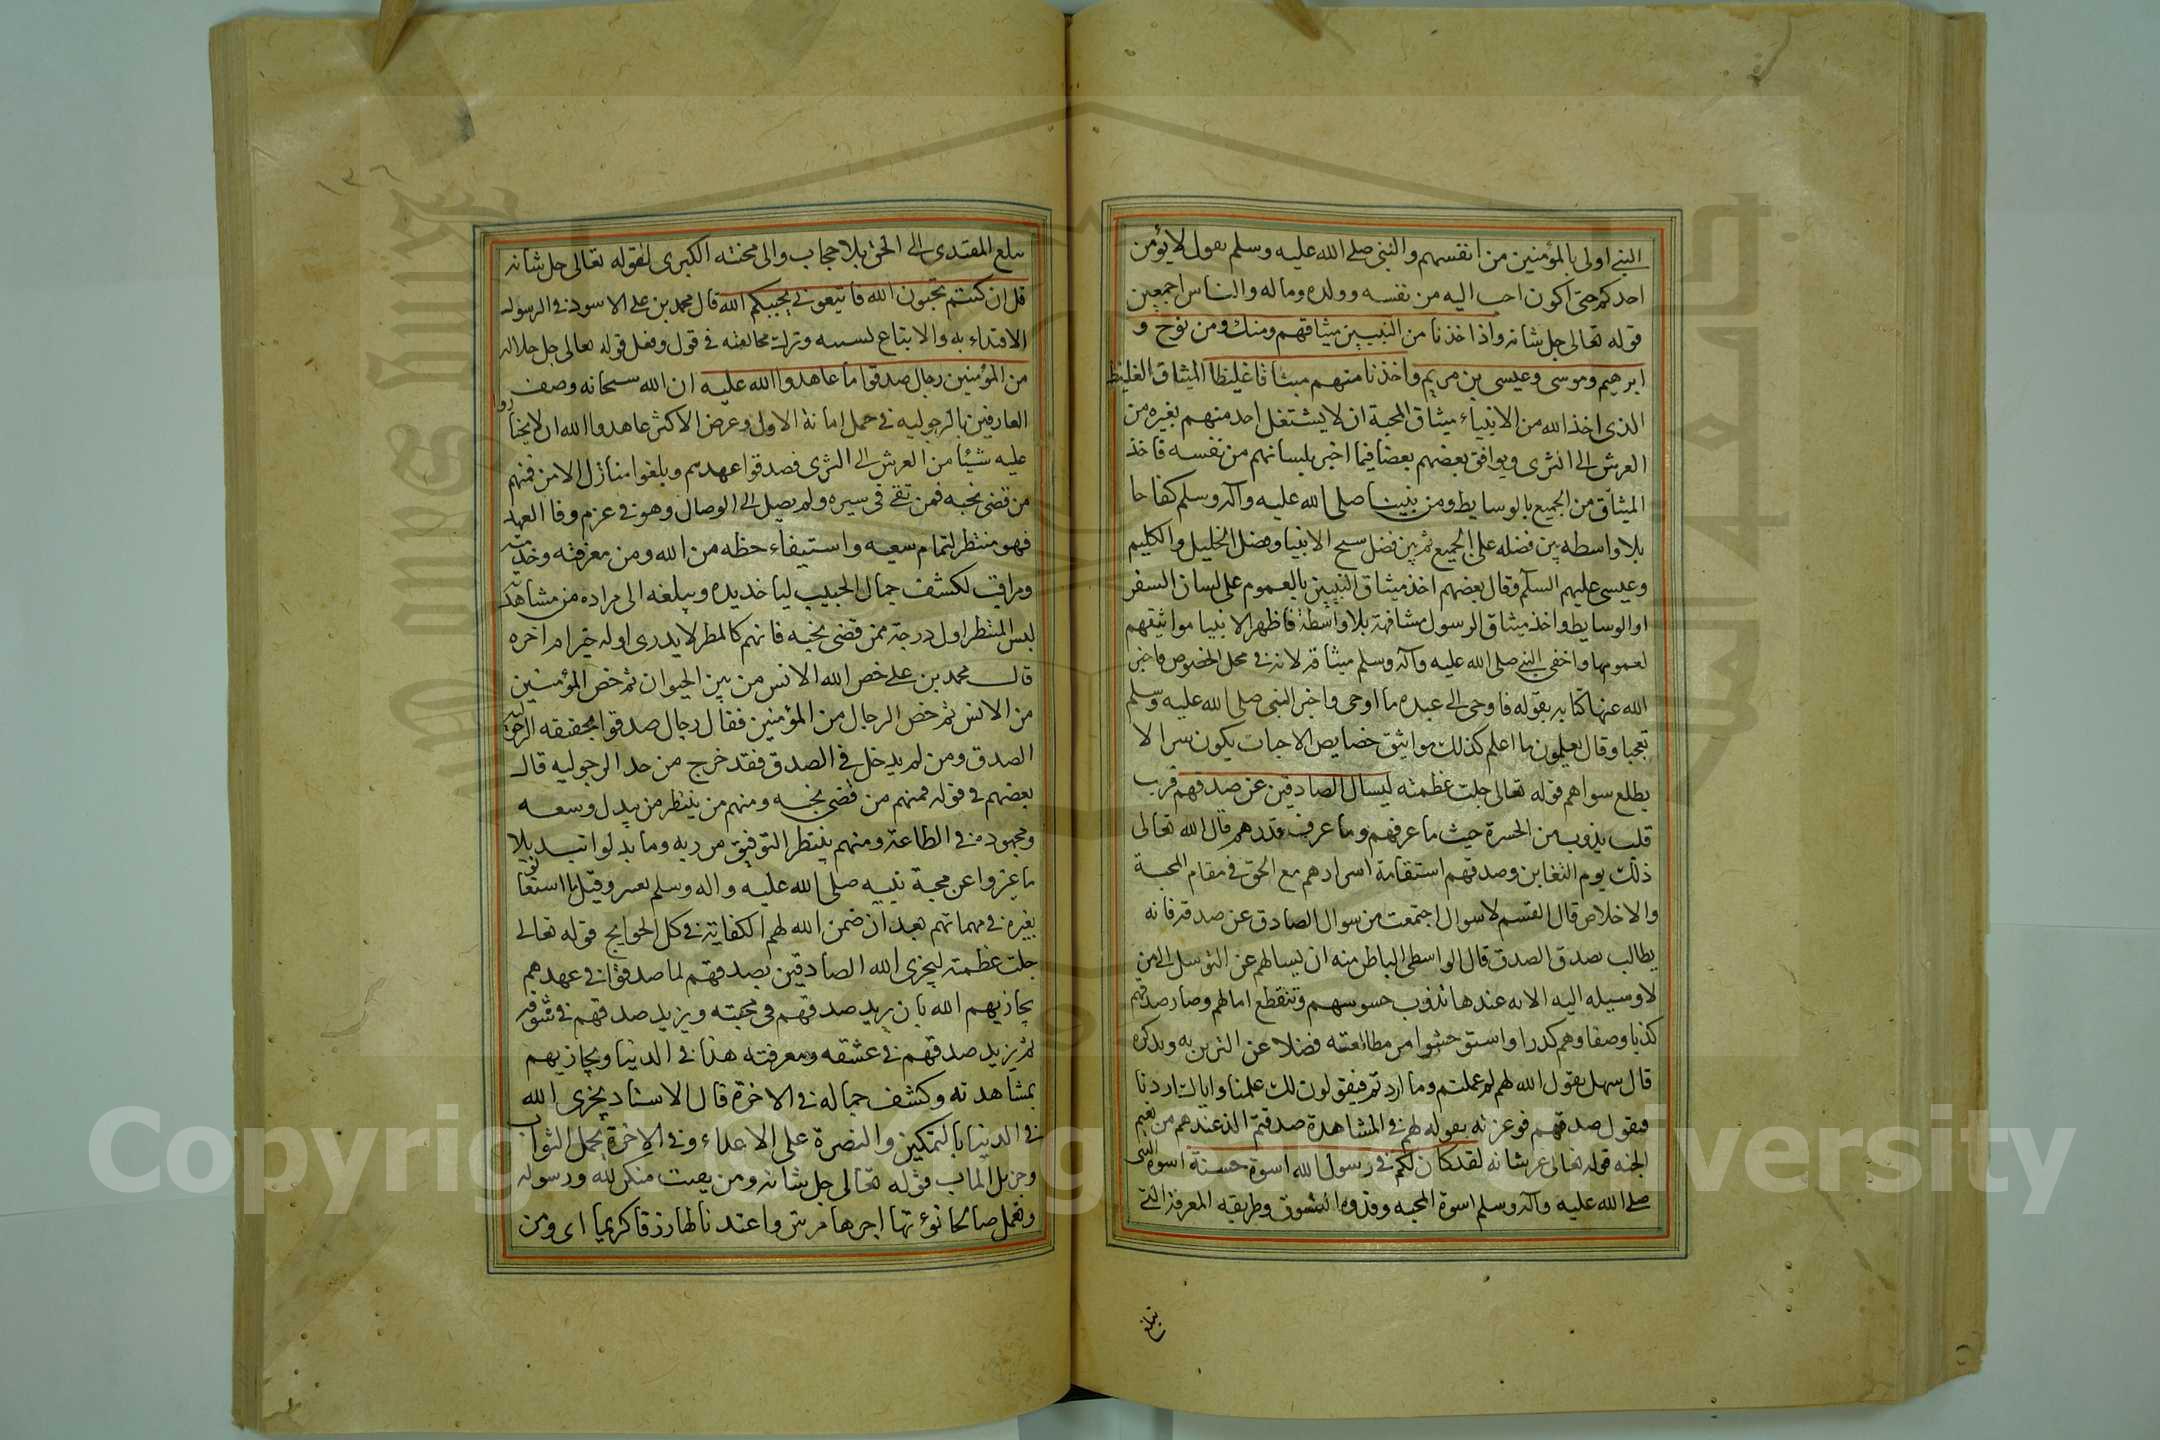 النبي اولى بالمؤمنين من انفسهم والنبي صلى الله عليه وسلم يقول لا يؤمن
احدكم حتى اكون احب اليه من نفسه وولده وماله والناس اجمعين
قوله تعالى جل شانه واذ اخذنا من النبيين ميثاقهم ومنك ومن نوح و
ابرهيم وموسى وعيسى بن مريم واخذنا منهم ميثاقا غليظا الميثاق الغليظ
الذى اخذ الله من الانبياء ميثاق المحبة ان لا يشتغل احد منهم بغيره من
العرش الى الثرى ويوافق بعضهم بعضا فيما اخبر بلسانهم من نفسه فاخذ
الميثاق من الجميع بالوسايط ومن نبينا صلى الله عليه وآله وسلم كفاحا
بلا واسطه بين فضله على الجميع ثم بين فضل الانبيا وفضل الخليل والكليم
وعيسى عليهم السلم وقال بعضهم اخذ ميثاق النبيين بالعموم على لسان السفر
او الوسايط واخذ ميثاق الرسول مشافهة بلا واسطة فاظهر الانبيا مواثيقهم
لعمومها واخفى النبي صلى الله عليه وآله وسلم ميثاقه لانه في محل الخصوص فاخبر
الله عنها كتابه بقوله فاوحى الى عبده ما اوحى واخبر النبي صلى الله عليه وسلم
تعجبا وقال يعلمون ما اعلم كذلك مواثيق خصايص الاحباب يكون سرا لا
يطلع سواهم قوله تعالى جلت عظمته ليسال الصادقين عن صدقهم قرب
قلب يذوب من الحسرة حيث ما عرفهم وما عرف قدرهم قال الله تعالى
ذلك يوم التغابن وصدقهم استقامة اسرارهم مع الحق في مقام المحبة
والاخلاص قال القسم لا سوال من سوال الصادق عن صدقه فانه
يطالب بصدق الصدق قال الواسطى الباطن منه ان يسالهم عن التوسل الى من
لا وسيله اليه الا به عندها تذوب وتنقطع امالهم وصار صدقهم
كذبا وصفاوهم كدرا واستوحشوا من مطالعته فضلا عن التزين به وبذكره
قال سهل يقول الله لهم لم عملتم وما اردتم فيقولون لك علمنا واياك اردنا
فيقول صدقهم فوعزته بقوله لهم في المشاهدة صدقتم الذ عندهم من نعيم
الجنه قوله تعالى عز شانه لقد كان لكم في رسول الله اسوة حسنة اسوة النبي
صلى الله عليه وآله وسلم اسوة المحبه وقدوة الشوق وطريقه المعرفة التي
تبلغ
١٣٦
تبلغ المقتدى الى الحق بلا حجاب والى محبته الكبرى لقوله تعالى جل شانه
قل ان كنتم تحبون الله فاتبعوني يحببكم الله قال محمد بن على الاسوة في الرسول
الاقتداء به والاتباع لسنته وترك مخالفته في قول وفعل قوله تعالى جل جلاله
من المؤمنين رجال صدقوا ما عاهدوا الله عليه ان الله سبحانه وصف
العارفين بالرجوليه في حمل امانة الاول وعرض الاكثر عاهدوا الله ان لا يختاروا
عليه شيئا من العرش الى الثرى فصدقوا عهدهم وبلغوا منازل الامن فمنهم
من قضى نحبه فمن بقى في سيره ولم يصل الى الوصال وهو في عزم وفا العهد
فهو منتظر لتمام سعيه واستيفاء حظه من الله ومن معرفته وخدمته
ومراقب لكشف جمال الحبيب لياخذ يده ويبلغه الى مراده من مشاهدته
ليس المنتظر اول درجة ممن قضى نحبه فانهم كالمطر لا يدرى اوله خير ام اخره
قال محمد بن على خص الله الانس من بين الحيوان ثم خص المؤمنين
من الانس ثم خص الرجال من المؤمنين فقال رجال صدقوا فحقيقه الرجوليه
الصدق ومن لم يدخل في الصدق فقد خرج من حد الرجوليه قال
بعضهم في قوله فمنهم من قضى نحبه ومنهم من ينتظر من بذل وسعه
ومجهوده في الطاعة ومنهم ينتظر التوفيق من ربه وما بدلوا تبديلا
ما غيروا عن محبة نبيه صلى الله عليه واله وسلم وقيل ما استغاثوا
بغيره في مهماتهم بعد ان ضمن الله لهم الكفاية في كل الحوايج قوله تعالى
جلت عظمته ليجزى الله الصادقين بصدقهم لما صدقوا في عهدهم
يجازيهم الله بان يزيد صدقهم في محبته ويزيد صدقهم في شوقه
ثم يزيد صدقهم في عشقه ومعرفته هذا في الدنيا ويجازيهم
بمشاهدته وكشف جماله في الاخرة قال الاستاد يجزى الله
في الدنيا بالتمكين والنصرة على الاعداء وفي الاخرة بجميل الثواب
وجزيل الماب قوله تعالى جل شانه ومن يقنت منكن لله ورسوله
وتعمل صالحا نوءتها اجرها مرتين واعتدنا لها رزقا كريما اى ومن
Copyright © King Saud University